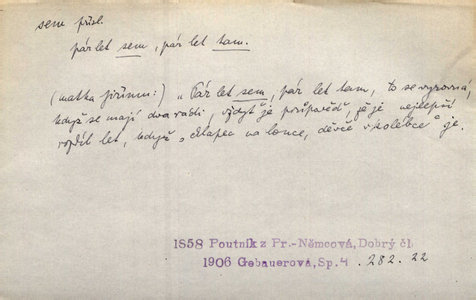 sem přísl.
pár let sem, pár let tam.
(matka jiřímu:) „Pár let sem, pár let tam, to se vyrovná,
když se mají dva rádi, vždyť je přípověď, že je nejlepší
rozdíl let, když „chlapec na louce, děvče v kolébce" je.
1858 Poutník z Pr.-Němcová, Dobrý čl.
1906 Gebauerová, Sp. 4. 282. 22